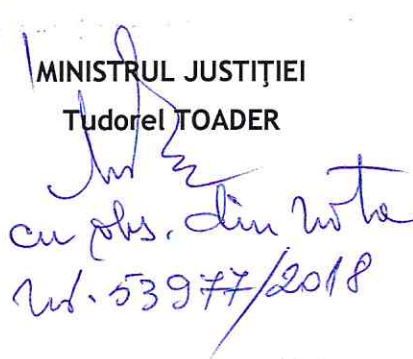 MINISTRUL JUSTIŢIEI
Tudorel TOADER
cu obs. din nota
nr. 53977/2018